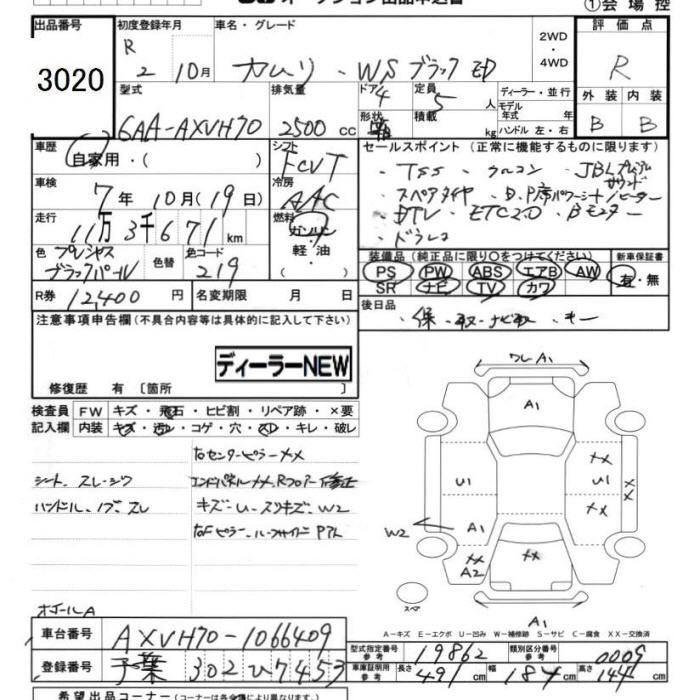 ①会場控
出品番号
3020
初度登録年月
R 2 10月
車名・グレード
カムリ・WSブラックED
2WD・4WD
評価点
R
型式
6AA-AXVH70
排気量
2500 cc
ドア 4
形状
定員 5 人
積載 kg
ディーラー・並行
モデル年式 年
ハンドル 左・右
外装 内装
B B
車歴
自家用・( )
シフト
FCVT
セールスポイント (正常に機能するものに限ります)
・TSS ・クルコン ・JBLプレミアムサウンド
・スペアタイヤ ・D.P席パワーシート/ヒーター
・DTV ・ETC2.0 ・Bモニター
・ドラレコ
車検
7年 10月(19日)
冷房
AAC
走行
11万3千671 km
燃料
ガソリン
軽油
色
プレシャス
ブラックパール
色替
色コード
219
装備品 (純正品に限り○をつけてください)
PS PW ABS エアB AW
SR ナビ TV カワ
新車保証書
有・無
R券
12,400円
名変期限 月 日
後日品
・保・取・ナビ取・キー
注意事項申告欄(不具合内容等は具体的に記入して下さい)
ディーラーNEW
修復歴 有 [箇所 ]
検査員記入欄
FW キズ・飛石・ヒビ割・リペア跡・×要
内装 キズ・汚レ・コゲ・穴・スレ・キレ・破レ
右センターピラーメメ
シート、スレ・シワ
エンドパネルメメ、Rフロアー修正
ハンドル、ノブ、スレ
キズ・U・スリキズ、W2
ボゴールA
ワレA1
A1
U1
メメ
U1
××
メメ
A1
W2
メメ
A2
メメ
スペア
A1
A-キズ E-エクボ U-凹み W-補修跡 S-サビ C-腐食 XX-交換済
車台番号
AXVH70-1066409
登録番号
千葉 302 ひ 7453
型式指定番号 参考
19862
類別区分番号 参考
0009
車庫証明用 参考
長さ 491 cm 幅 184 cm 高さ 144 cm
希望出品コーナー(コーナーは各会場により異なります。)